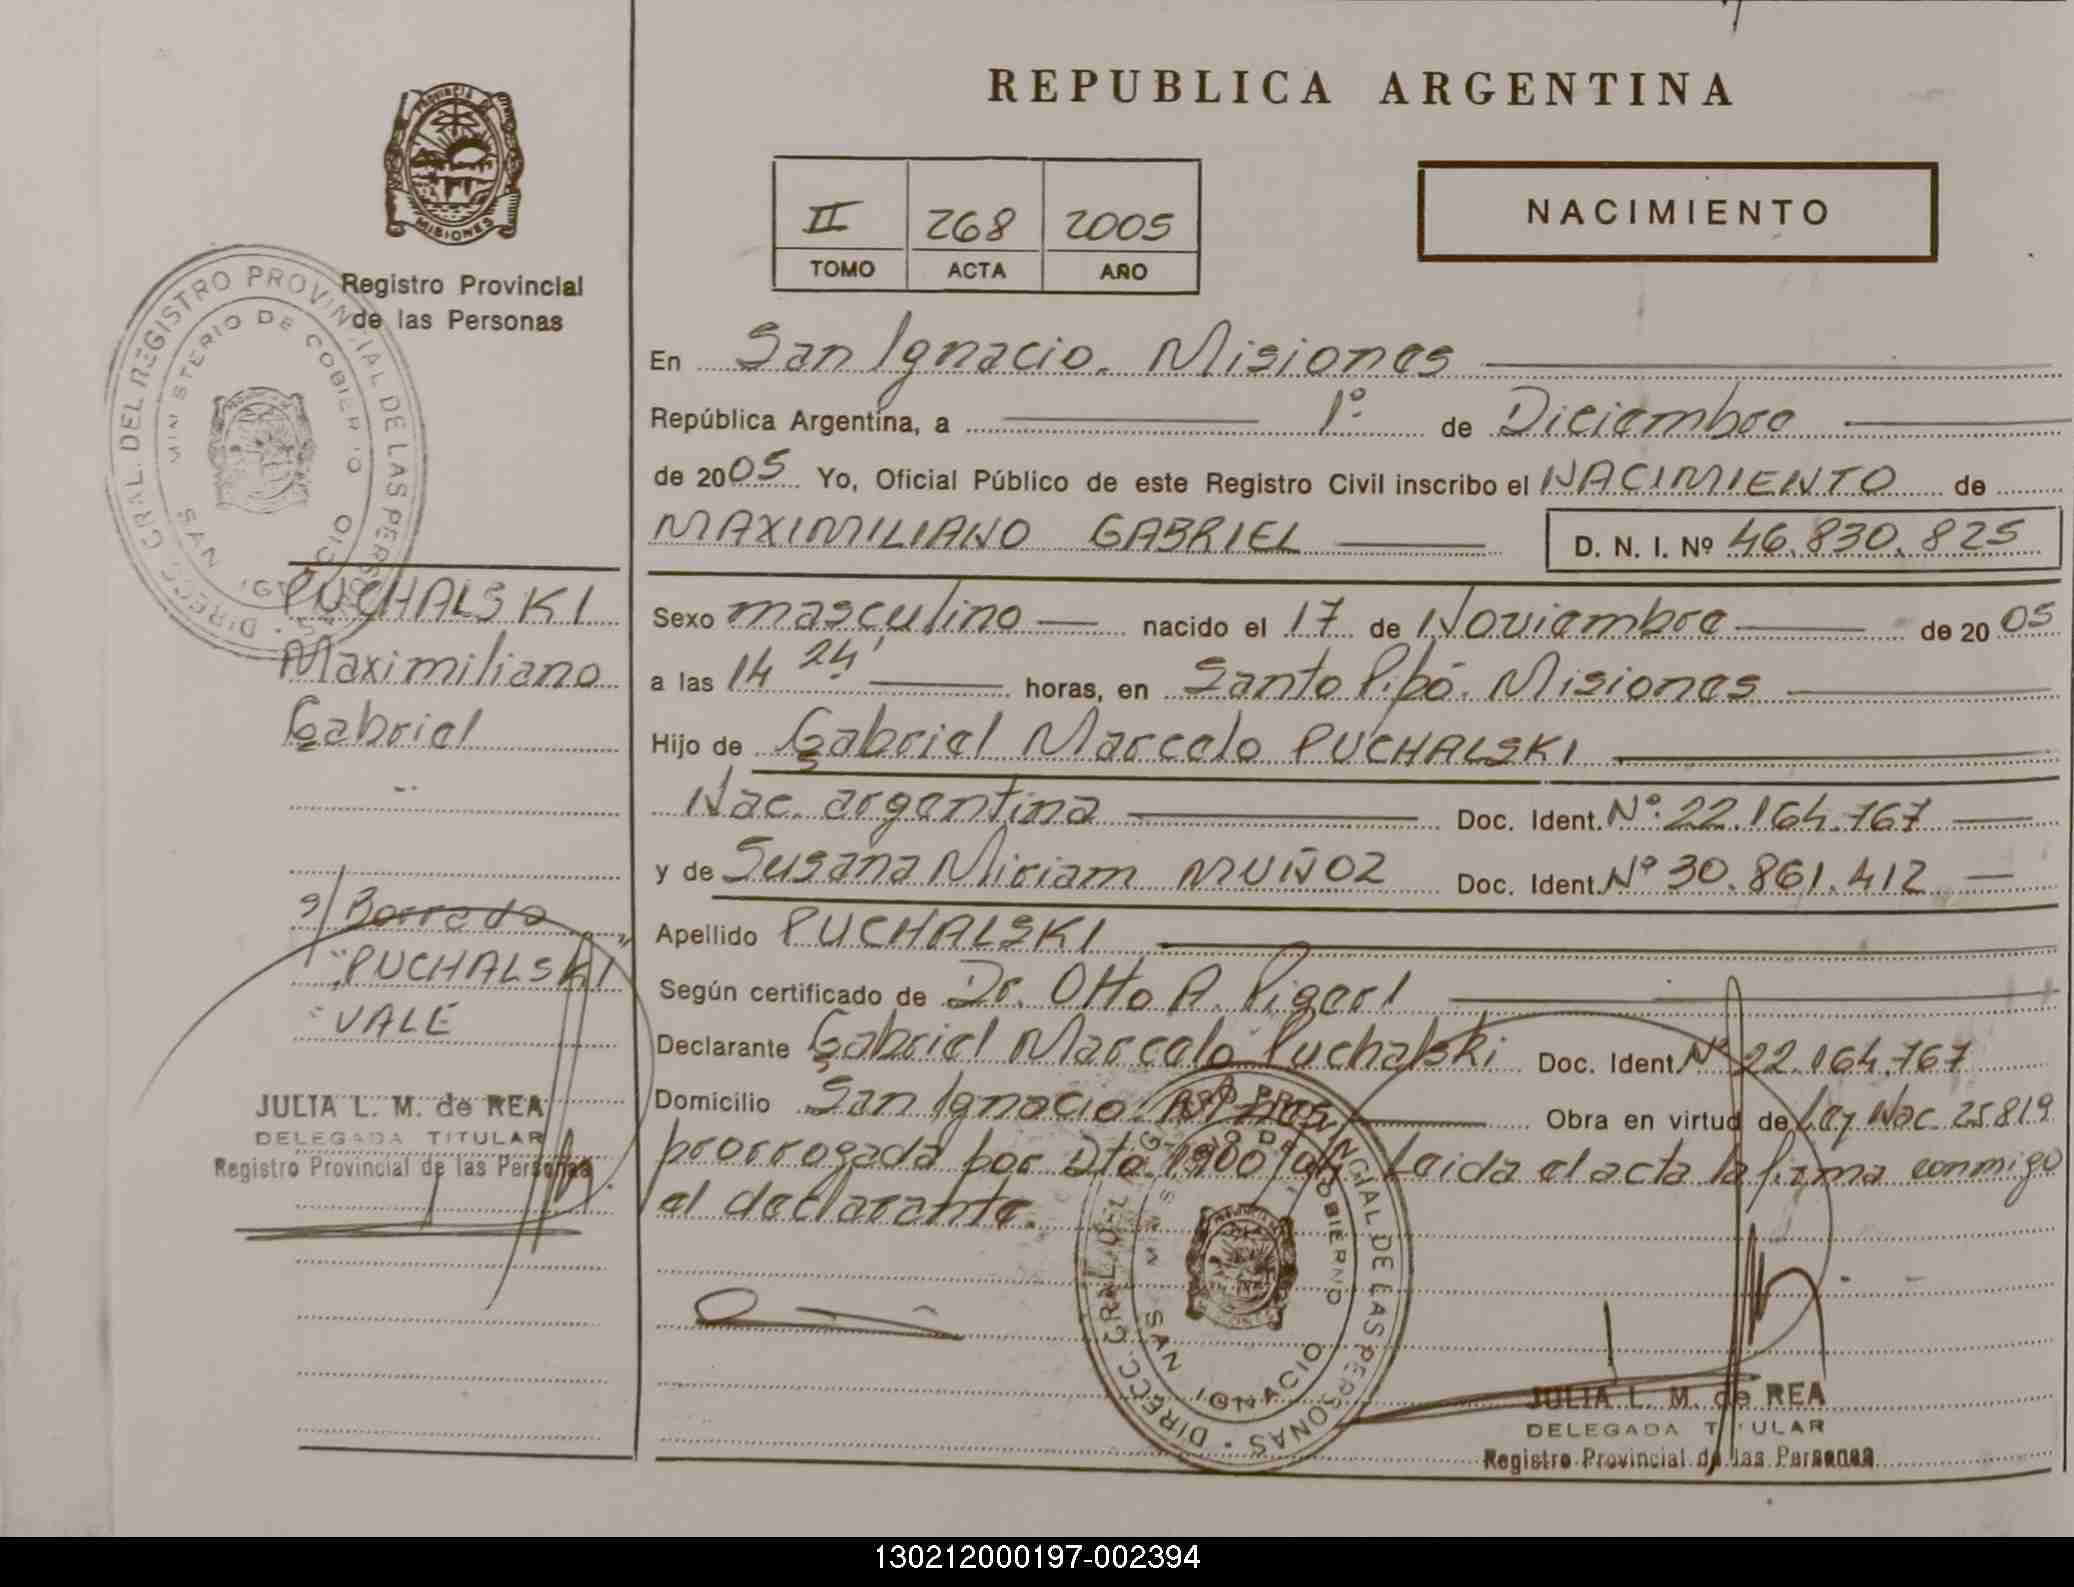 REPUBLICA ARGENTINA
PROVINCIA DE
MISIONES
Registro Provincial
de las Personas
II 268 2005
TOMO ACTA AÑO
NACIMIENTO
DIRECC. GRAL. DEL REGISTRO PROVINCIAL DE LAS PERSONAS
MINISTERIO DE GOBIERNO
SAN IGNACIO
En San Ignacio. Misiones
República Argentina, a 1º de Diciembre
de 2005 Yo, Oficial Público de este Registro Civil inscribo el NACIMIENTO de
MAXIMILIANO GABRIEL D. N. I. Nº 46.830.825
Sexo masculino nacido el 17 de Noviembre de 2005
a las 14 24' horas, en Santo Pipó. Misiones
Hijo de Gabriel Marcelo PUCHALSKI
Nac. argentina Doc. Ident. Nº 22.164.767
y de Susana Miriam MUÑOZ Doc. Ident. Nº 30.861.412
Apellido PUCHALSKI
Según certificado de Dr. Otto A. Pigerl
Declarante Gabriel Marcelo Puchalski Doc. Ident. Nº 22.164.767
Domicilio San Ignacio Obra en virtud de Ley Nac. 25.819
prorrogada por Dto. 1900/04 Leida el acta la firma conmigo
el declarante.
PUCHALSKI
Maximiliano
Gabriel
s/ Borrado
"PUCHALSKI"
VALE
JULIA L. M. de REA
DELEGADA TITULAR
Registro Provincial de las Personas
DIRECC. GRAL. DEL REGISTRO PROVINCIAL DE LAS PERSONAS
MINISTERIO DE GOBIERNO
SAN IGNACIO
JULIA L. M. de REA
DELEGADA TITULAR
Registro Provincial de las Personas
130212000197-002394